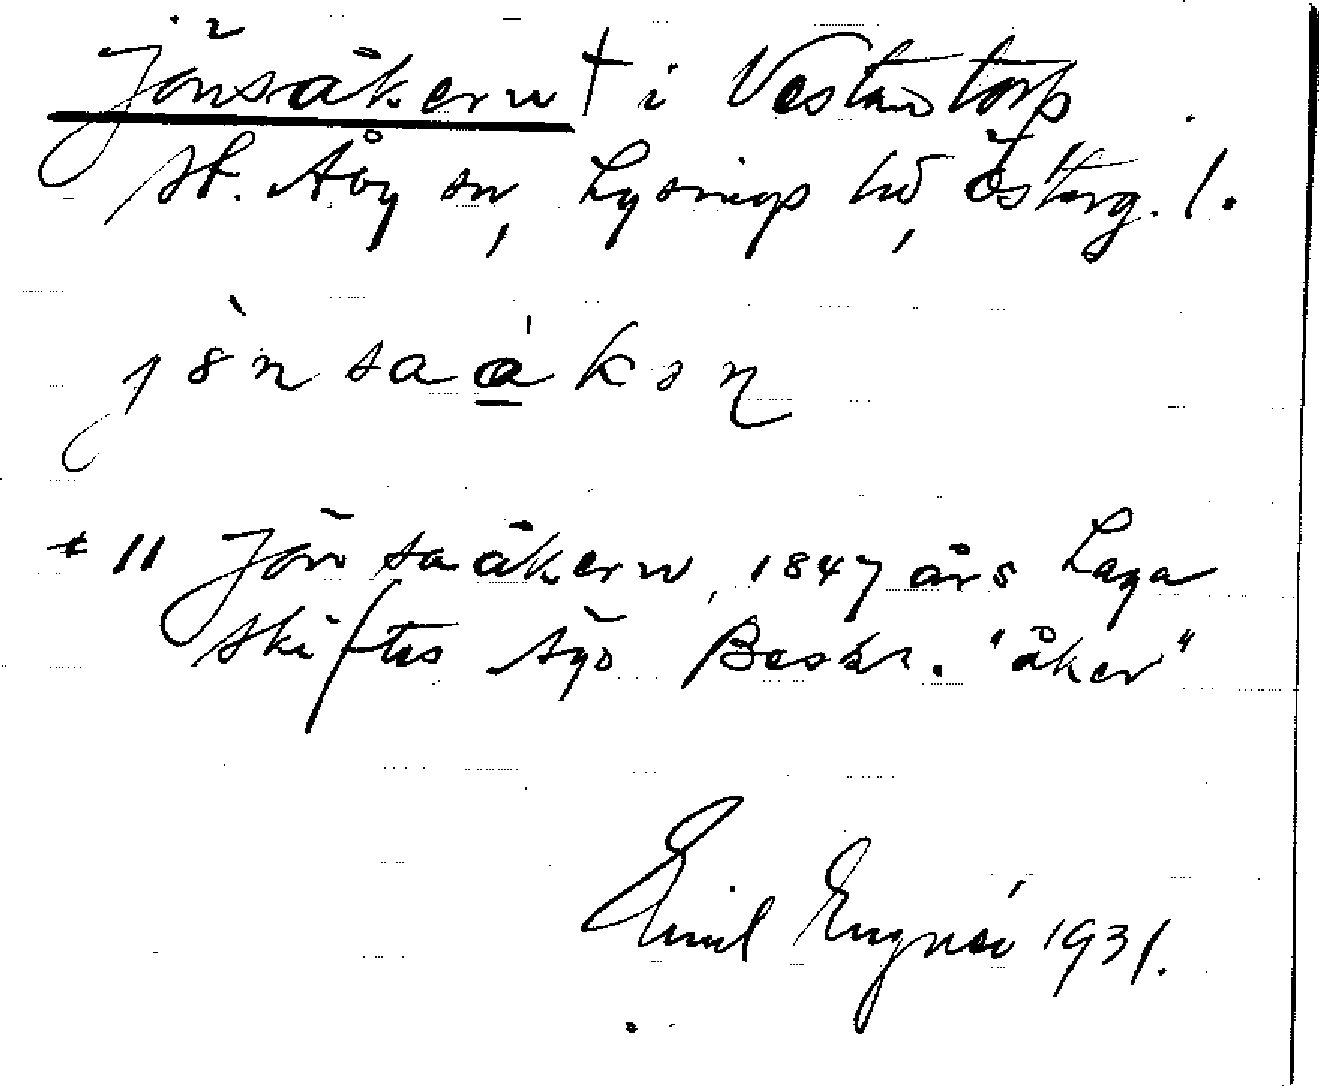 Jönsåkern † i Västantorp
St. Åby sn, Lysings hd, Österg. l.
jönsaåkən
* 11 Jönsaåkern, 1847 års Laga
skiftes Ägo Beskr. "åker"
Emil Engnér 1931.